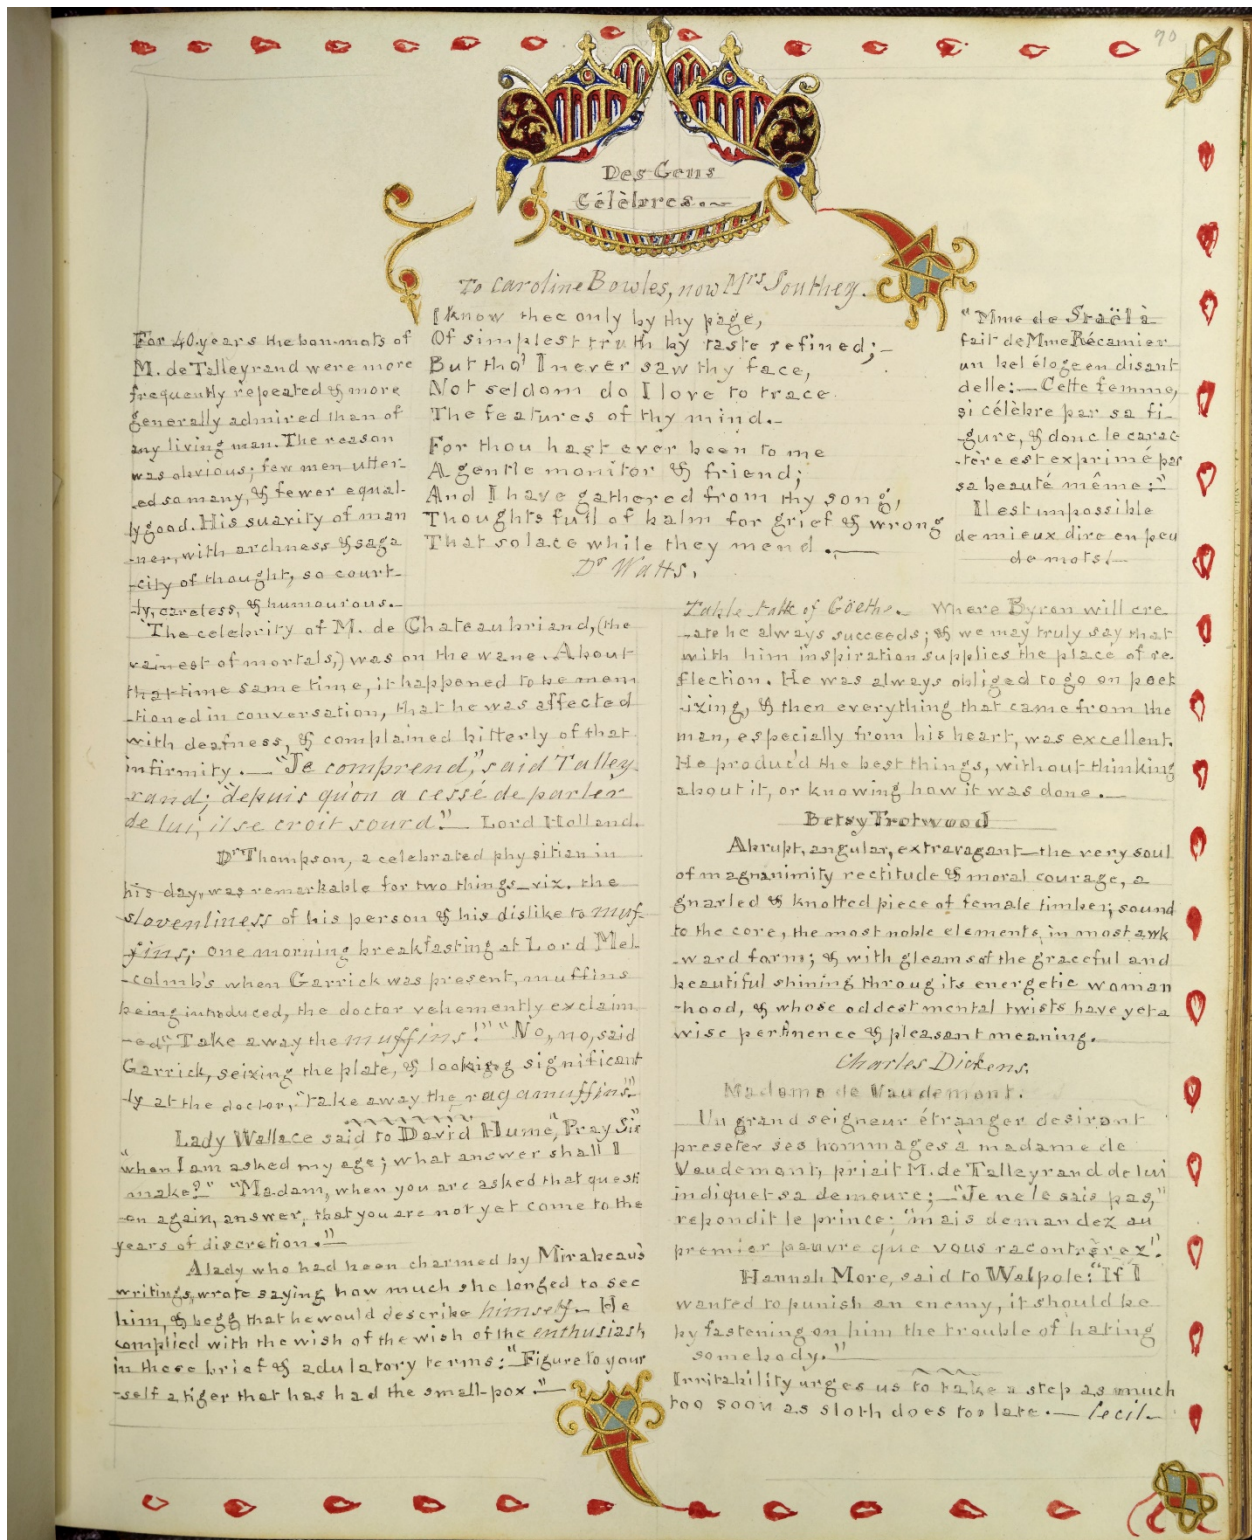 90
Des Gens
Célèbres.~
To Caroline Bowles, now Mrs Southey.
I know thee only by thy page,
Of simplest truth by taste refined;-
But tho' I never saw thy face,
Not seldom do I love to trace
The features of thy mind.-
For thou hast ever been to me
A gentle monitor & friend;
And I have gathered from thy song,
Thoughts full of balm for grief & wrong
That solace while they mend.—
Dr Watts.
For 40 years the bon-mots of
M. de Talleyrand were more
frequently repeated & more
generally admired than of
any living man. The reason
was obvious; few men utter-
-ed so many, & fewer equal-
ly good. His suavity of man
-ner, with archness & saga
-city of thought, so court-
-ly, careless, & humourous.-
The celebrity of M. de Chateaubriand, (the
vainest of mortals,) was on the wane. About
that time same time, it happened to be men
-tioned in conversation, that he was affected
with deafness, & complained bitterly of that
infirmity.— "Je comprend," said Talley-
rand; "depuis qu'on a cessé de parler
de lui, il se croit sourd."— Lord Holland.
Dr Thompson, a celebrated physitian in
his day, was remarkable for two things—viz. the
slovenliness of his person & his dislike to muf-
fins; one morning breakfasting at Lord Mel-
-colmb's when Garrick was present, muffins
being introduced, the doctor vehemently exclaim
-ed; "Take away the muffins!" "No, no, said
Garrick, seizing the plate, & looking significant
-ly at the doctor, "take away the ragamuffins."
Lady Wallace said to David Hume, "Pray Sir
"when I am asked my age; what answer shall I
make?" "Madam, when you are asked that questi
-on again, answer, that you are not yet come to the
years of discretion."—
A lady who had been charmed by Mirabeau's
writings, wrote saying how much she longed to see
him, & begg that he would describe himself- He
complied with the wish of the wish of the enthusiast,
in these brief & adulatory terms: "Figure to your
-self a tiger that has had the small-pox."—
"Mme de Staël à
fait de Mme Récamier
un bel éloge en disant
delle:— Cette femme,
si célèbre par sa fi-
-gure, & donc le carac-
-tère est exprimé par
sa beauté même:"
Il est impossible
de mieux dire en peu
de mots!—
Table talk of Göethe.— Where Byron will cre
-ate he always succeeds; & we may truly say that
with him inspiration supplies the place of re-
flection. He was always obliged to go on poet
-izing, & then everything that came from the
man, especially from his heart, was excellent.
He produc'd the best things, without thinking
about it, or knowing how it was done.—
Betsy Trotwood
Abrupt, angular, extravagant—the very soul
of magnanimity rectitude & moral courage, a
gnarled & knotted piece of female timber; sound
to the core, the most noble elements, in most awk
-ward form; & with gleams of the graceful and
beautiful shining throug its energetic woman
-hood, & whose oddest mental twists have yet a
wise pertinence & pleasant meaning.
Charles Dickens.
Madame de Vaudemont.
Un grand seigneur étranger desirant
preseter ses hommages à madame de
Vaudemont, priait M. de Talleyrand de lui
indiquet sa demeure;—"Je ne le sais pas,"
repondit le prince; "mais demandez au
premier pauvre que vous racontrerez".
Hannah More, said to Walpole: "If I
wanted to punish an enemy, it should be
by fastening on him the trouble of hating
somebody."—
Irritability urges us to take a step as much
too soon as sloth does too late.— Cecil—